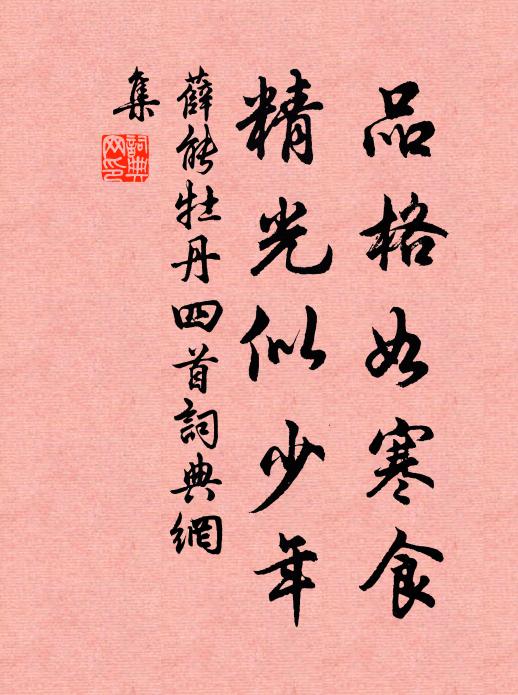 品格如寒食
精光似少年
薛能牡丹四首詞典網
集
詞典
网印